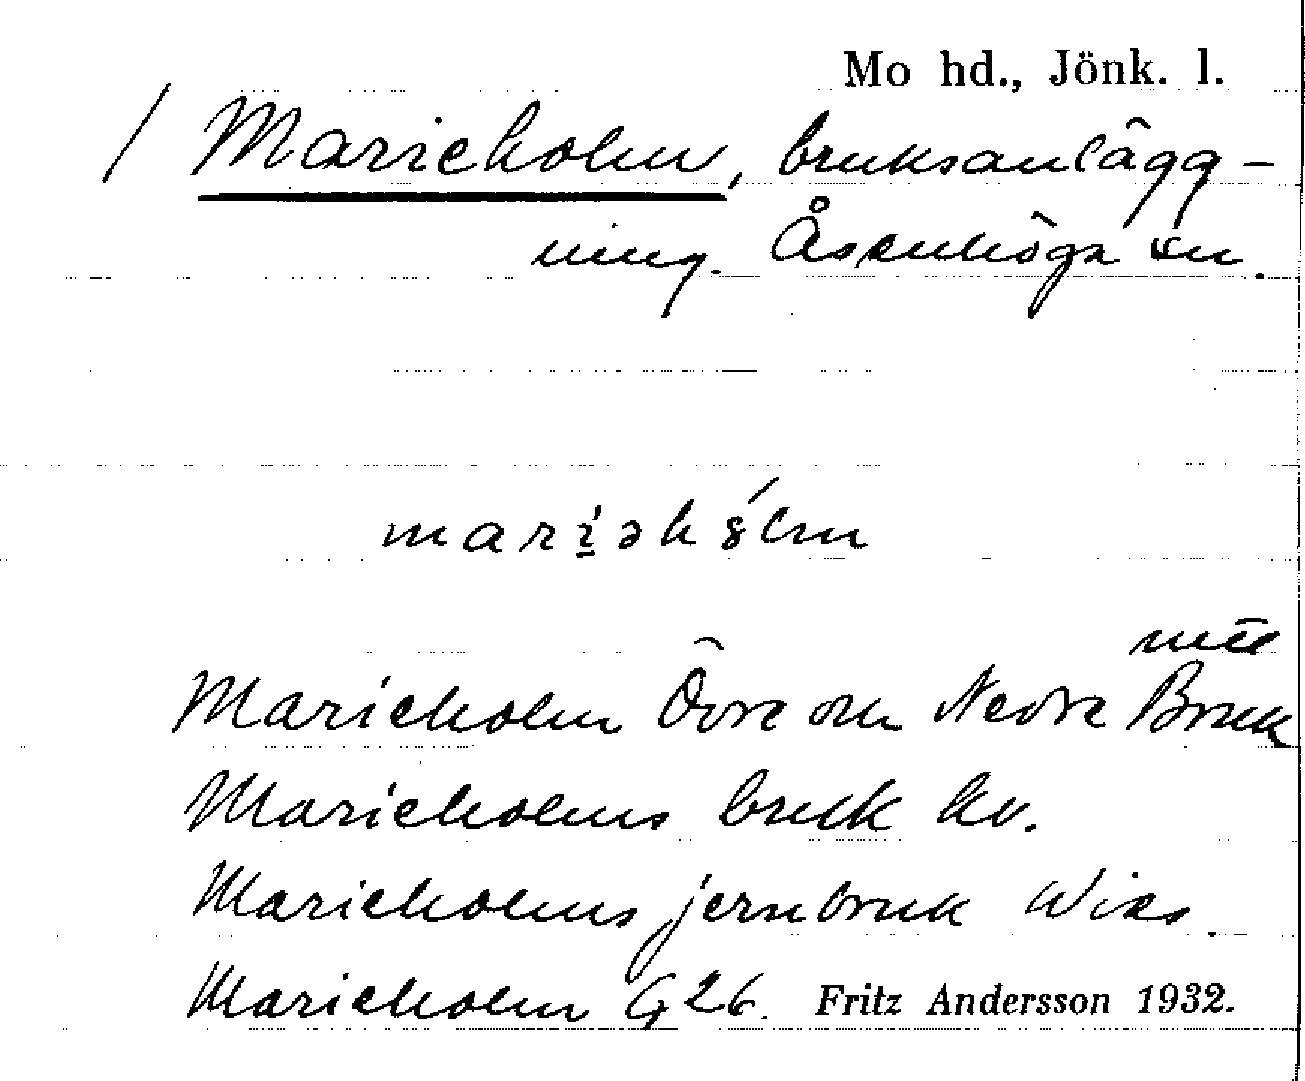 Mo hd., Jönk. l.
/ Marieholm, bruksanlägg-
ning. Åsenhöga sn.
mariəhólm
Marieholm Övre och Nedre Bruk
Marieholms bruk kv.
Marieholms jernbruk Wiss.
Marieholm G26. Fritz Andersson 1932.